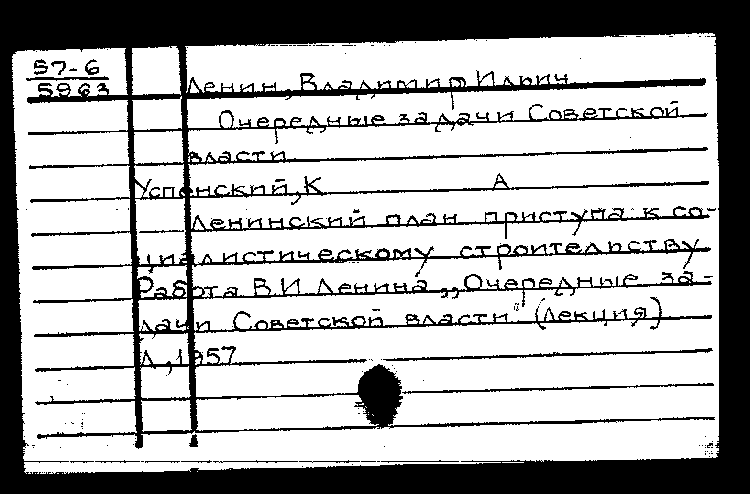 57-6
5963
Ленин, Владимир Ильич
Очередные задачи Советской
власти
Успенский, К А
Ленинский план приступа к со-
циалистическому строительству
Работа В.И Ленина „Очередные за-
дачи Советской власти" (лекция)
Л, 1957